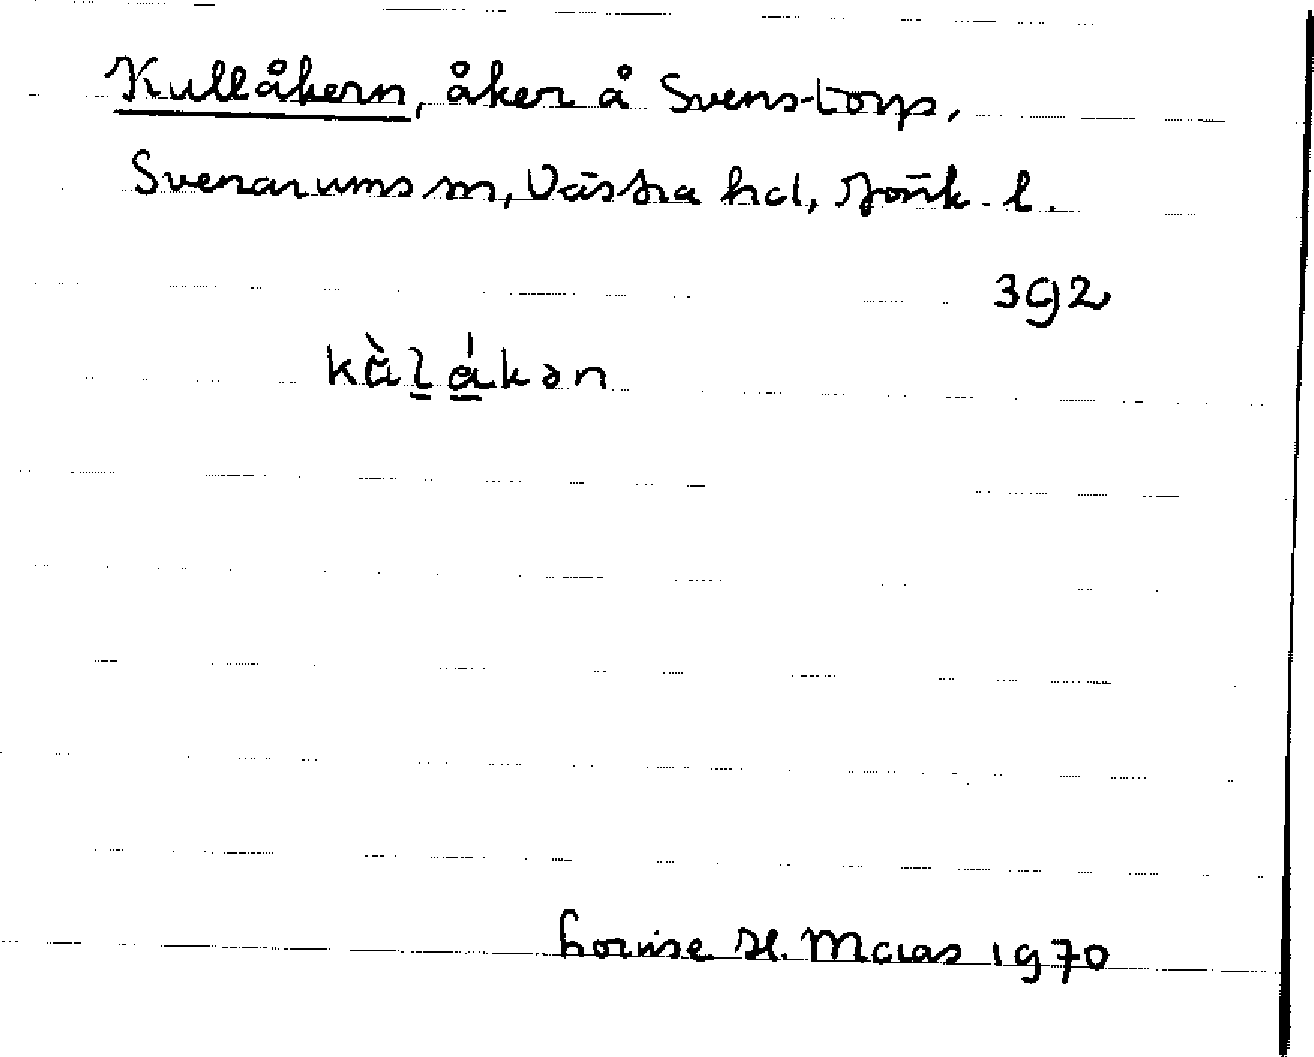 Kullåkern, åker å Svenstorp,
Svenarums sn, Västra hd, Jönk. l.
392
Louise H. Maas 1970